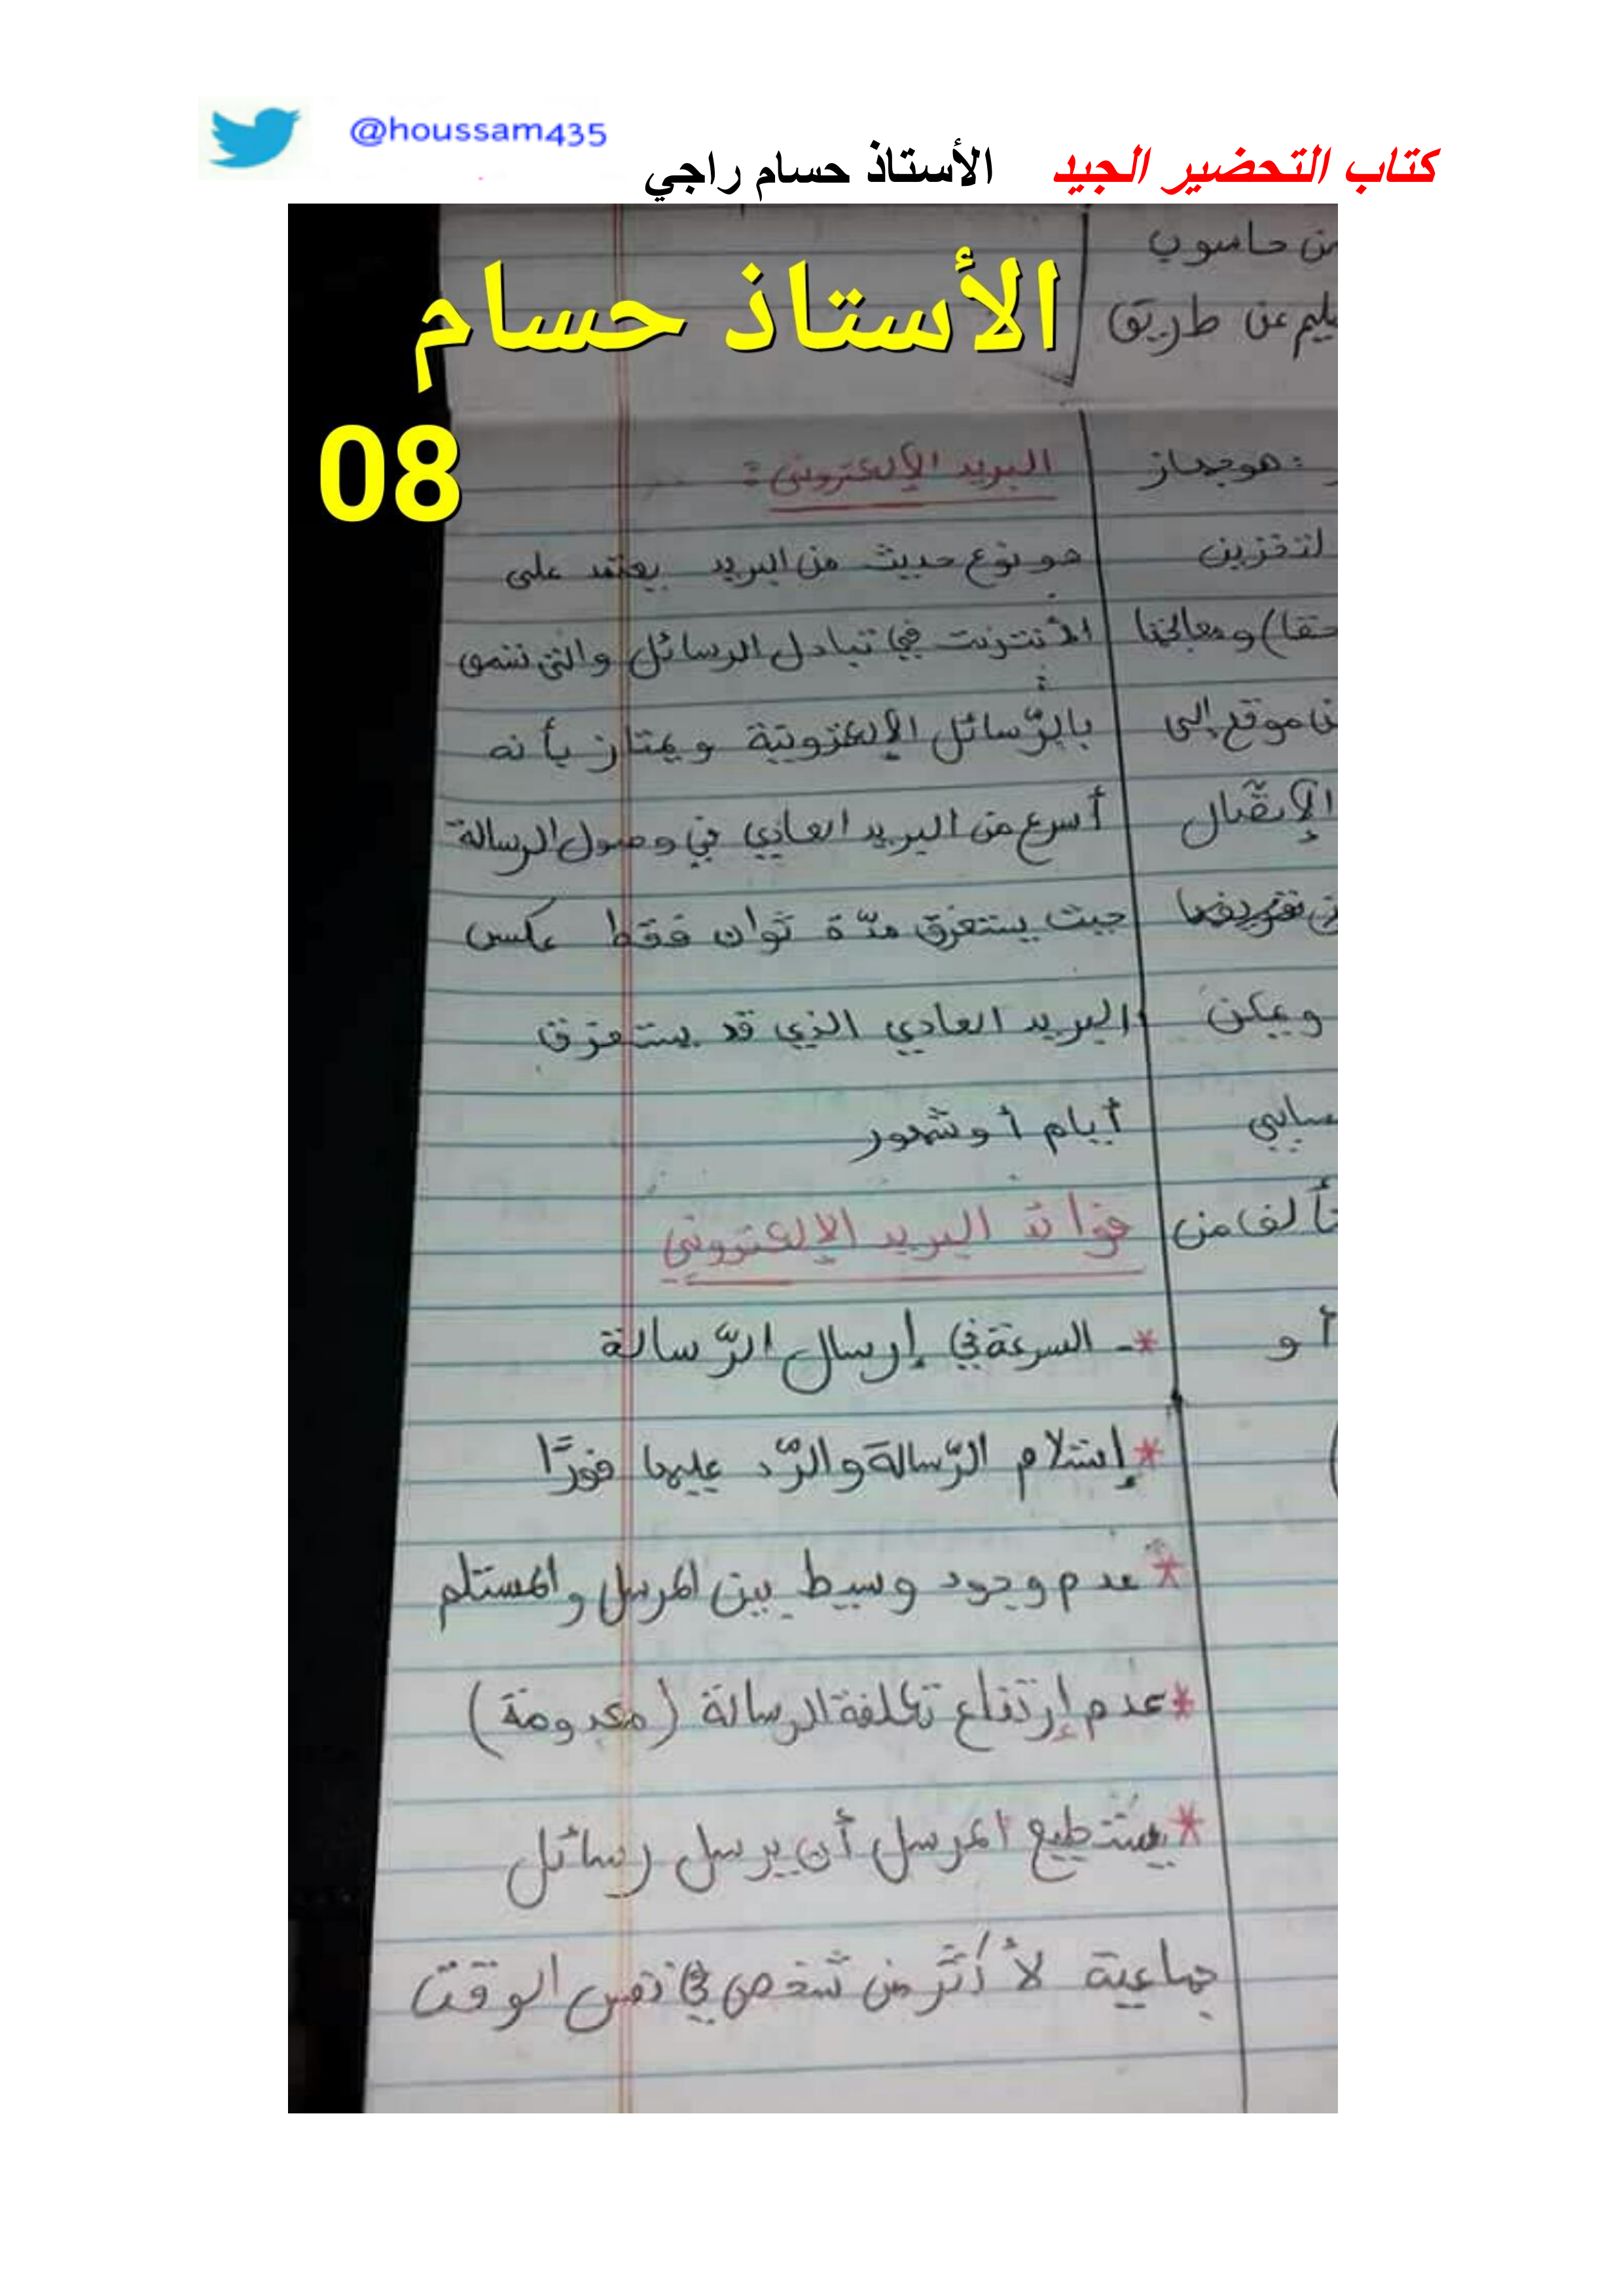 @houssam435
كتاب التحضير الجيد الأستاذ حسام راجي
الأستاذ حسام
08
من حاسوب
عن طريق
: هو جهاز
لتخزين
ومعالجتها
من موقع إلى
الإتصال
ويمكن
تألف من
أو
البريد الإلكتروني :
هو نوع حديث من البريد يعتمد على
الأنترنت في تبادل الرسائل والتي تسمى
بالرّسائل الإلكترونية ويمتاز بأنه
أسرع من البريد العادي في وصول الرسالة
حيث يستغرق مدّة ثوان فقط عكس
البريد العادي الذي قد يستغرق
أيام أو شهور
فوائد البريد الإلكتروني
*- السرعة في إرسال الرّسالة
* إستلام الرّسالة والرّد عليها فورًا
* عدم وجود وسيط بين المرسل والمستلم
* عدم إرتفاع تكلفة الرسالة (معدومة)
* يستطيع المرسل أن يرسل رسائل
جماعية لأكثر من شخص في نفس الوقت